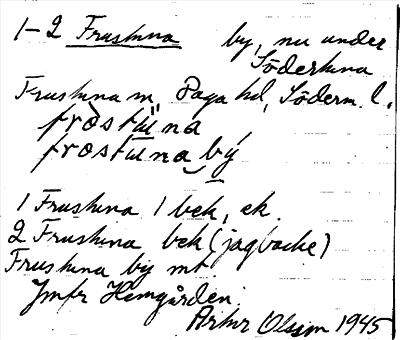 1-2 Frustuna by, nu under
Södertuna
Frustuna sn, Daga hd, Söderm. l.
fròstu̇na
frostuna by
1 Frustuna 1 bek, ek.
2 Frustuna bek (jagbacke)
Frustuna by mt
Jmfr Hemgården.
Artur Olsson 1945